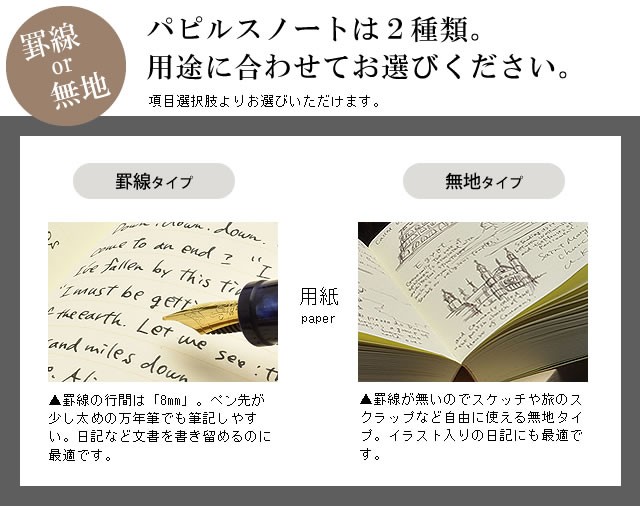 罫線
or
無地
パピルスノートは２種類。
用途に合わせてお選びください。
項目選択肢よりお選びいただけます。
罫線タイプ
無地タイプ
Down, down, down.
come to an end? "I
I've fallen by this
"I must be getti
the earth. Let me see: th
and miles down
用紙
paper
▲罫線の行間は「8㎜」。ペン先が
少し太めの万年筆でも筆記しやす
い。日記など文書を書き留めるのに
最適です。
▲罫線が無いのでスケッチや旅のス
クラップなど自由に使える無地タイ
プ。イラスト入りの日記にも最適で
す。